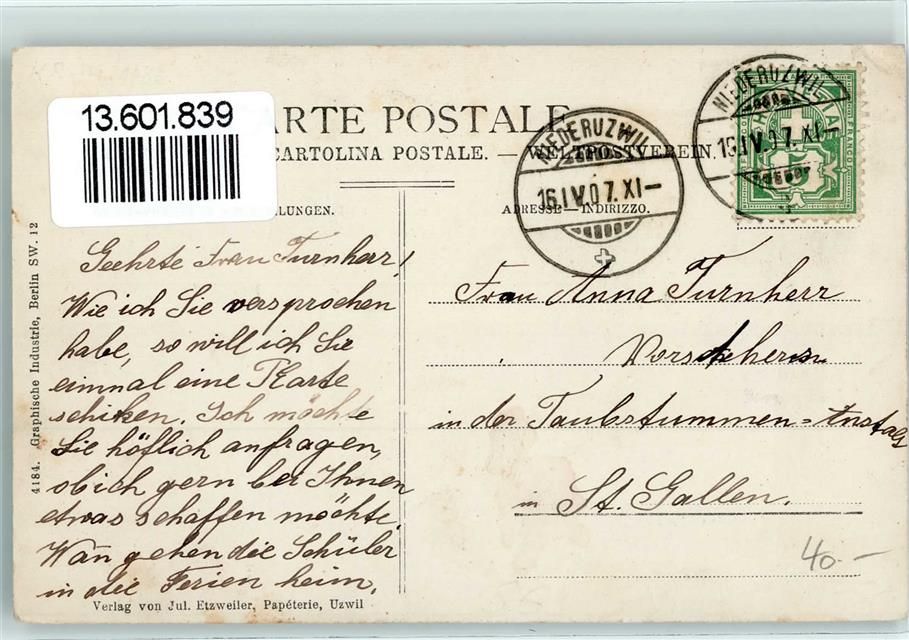 13.601.839
ARTE POSTALE
CARTOLINA POSTALE. — WELTPOSTVEREIN.
LUNGEN.
ADRESSE — INDIRIZZO.
NIEDERUZWIL
16.IV.07.XI—
NIEDERUZWIL
16.IV.07.XI—
Geehrte Frau Turnherr!
Wie ich Sie versprochen
habe, so will ich Sie
eimnal eine Karte
schiken. Ich möchte
Sie höflich anfragen,
ob ich gern bei Ihnen
etwas schaffen möchte.
Wan gehen die Schüler
in die Ferien heim.
Frau Anna Turnherr
Vorsteherin
in der Taubstummen=Anstalt
in St. Gallen.
40.—
4184. Graphische Industrie, Berlin SW. 12
Verlag von Jul. Etzweiler, Papéterie, Uzwil